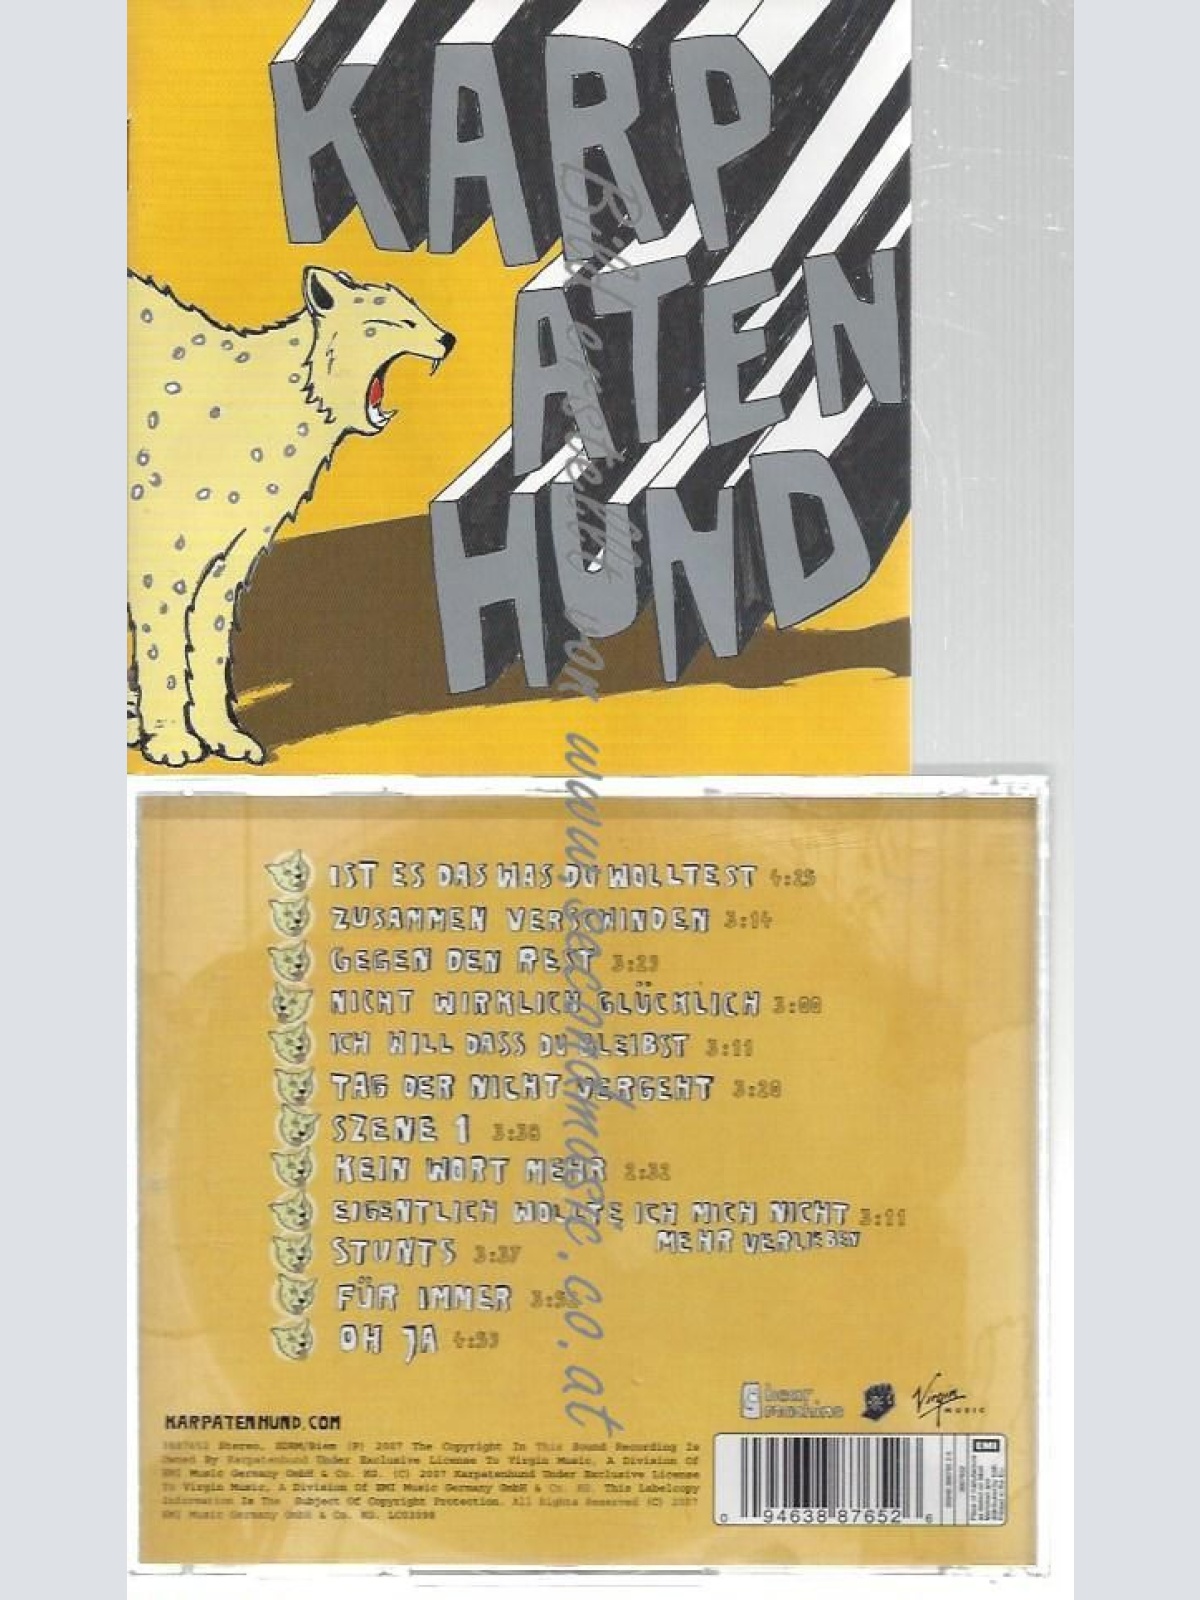 KARP
ATEN
HUND
IST ES DAS WAS DU WOLLTEST 4:25
ZUSAMMEN VERSCHWINDEN 3:14
GEGEN DEN REST 3:23
NICHT WIRKLICH GLÜCKLICH 3:00
ICH WILL DASS DU BLEIBST 3:11
TAG DER NICHT VERGEHT 3:20
SZENE 1 3:30
KEIN WORT MEHR 2:32
EIGENTLICH WOLLTE ICH MICH NICHT 3:11
MEHR VERLIEBEN
STUNTS 3:37
FÜR IMMER
OH JA 4:53
bear machine
Virgin
MUSIC
KARPATENHUND.COM
3687652 Stereo, SDRM/Biem (P) 2007 The Copyright In This Sound Recording Is
Owned By Karpatenhund Under Exclusive License To Virgin Music, A Division Of
EMI Music Germany GmbH & Co. KG. (C) 2007 Karpatenhund Under Exclusive License
To Virgin Music, A Division Of EMI Music Germany GmbH & Co. KG. This Labelcopy
Information Is The Subject Of Copyright Protection. All Rights Reserved (C) 2007
EMI Music Germany GmbH & Co. KG. LC03098
EMI
0 94638 87652 6
Bild erstellt von www.secondmusic.co.at